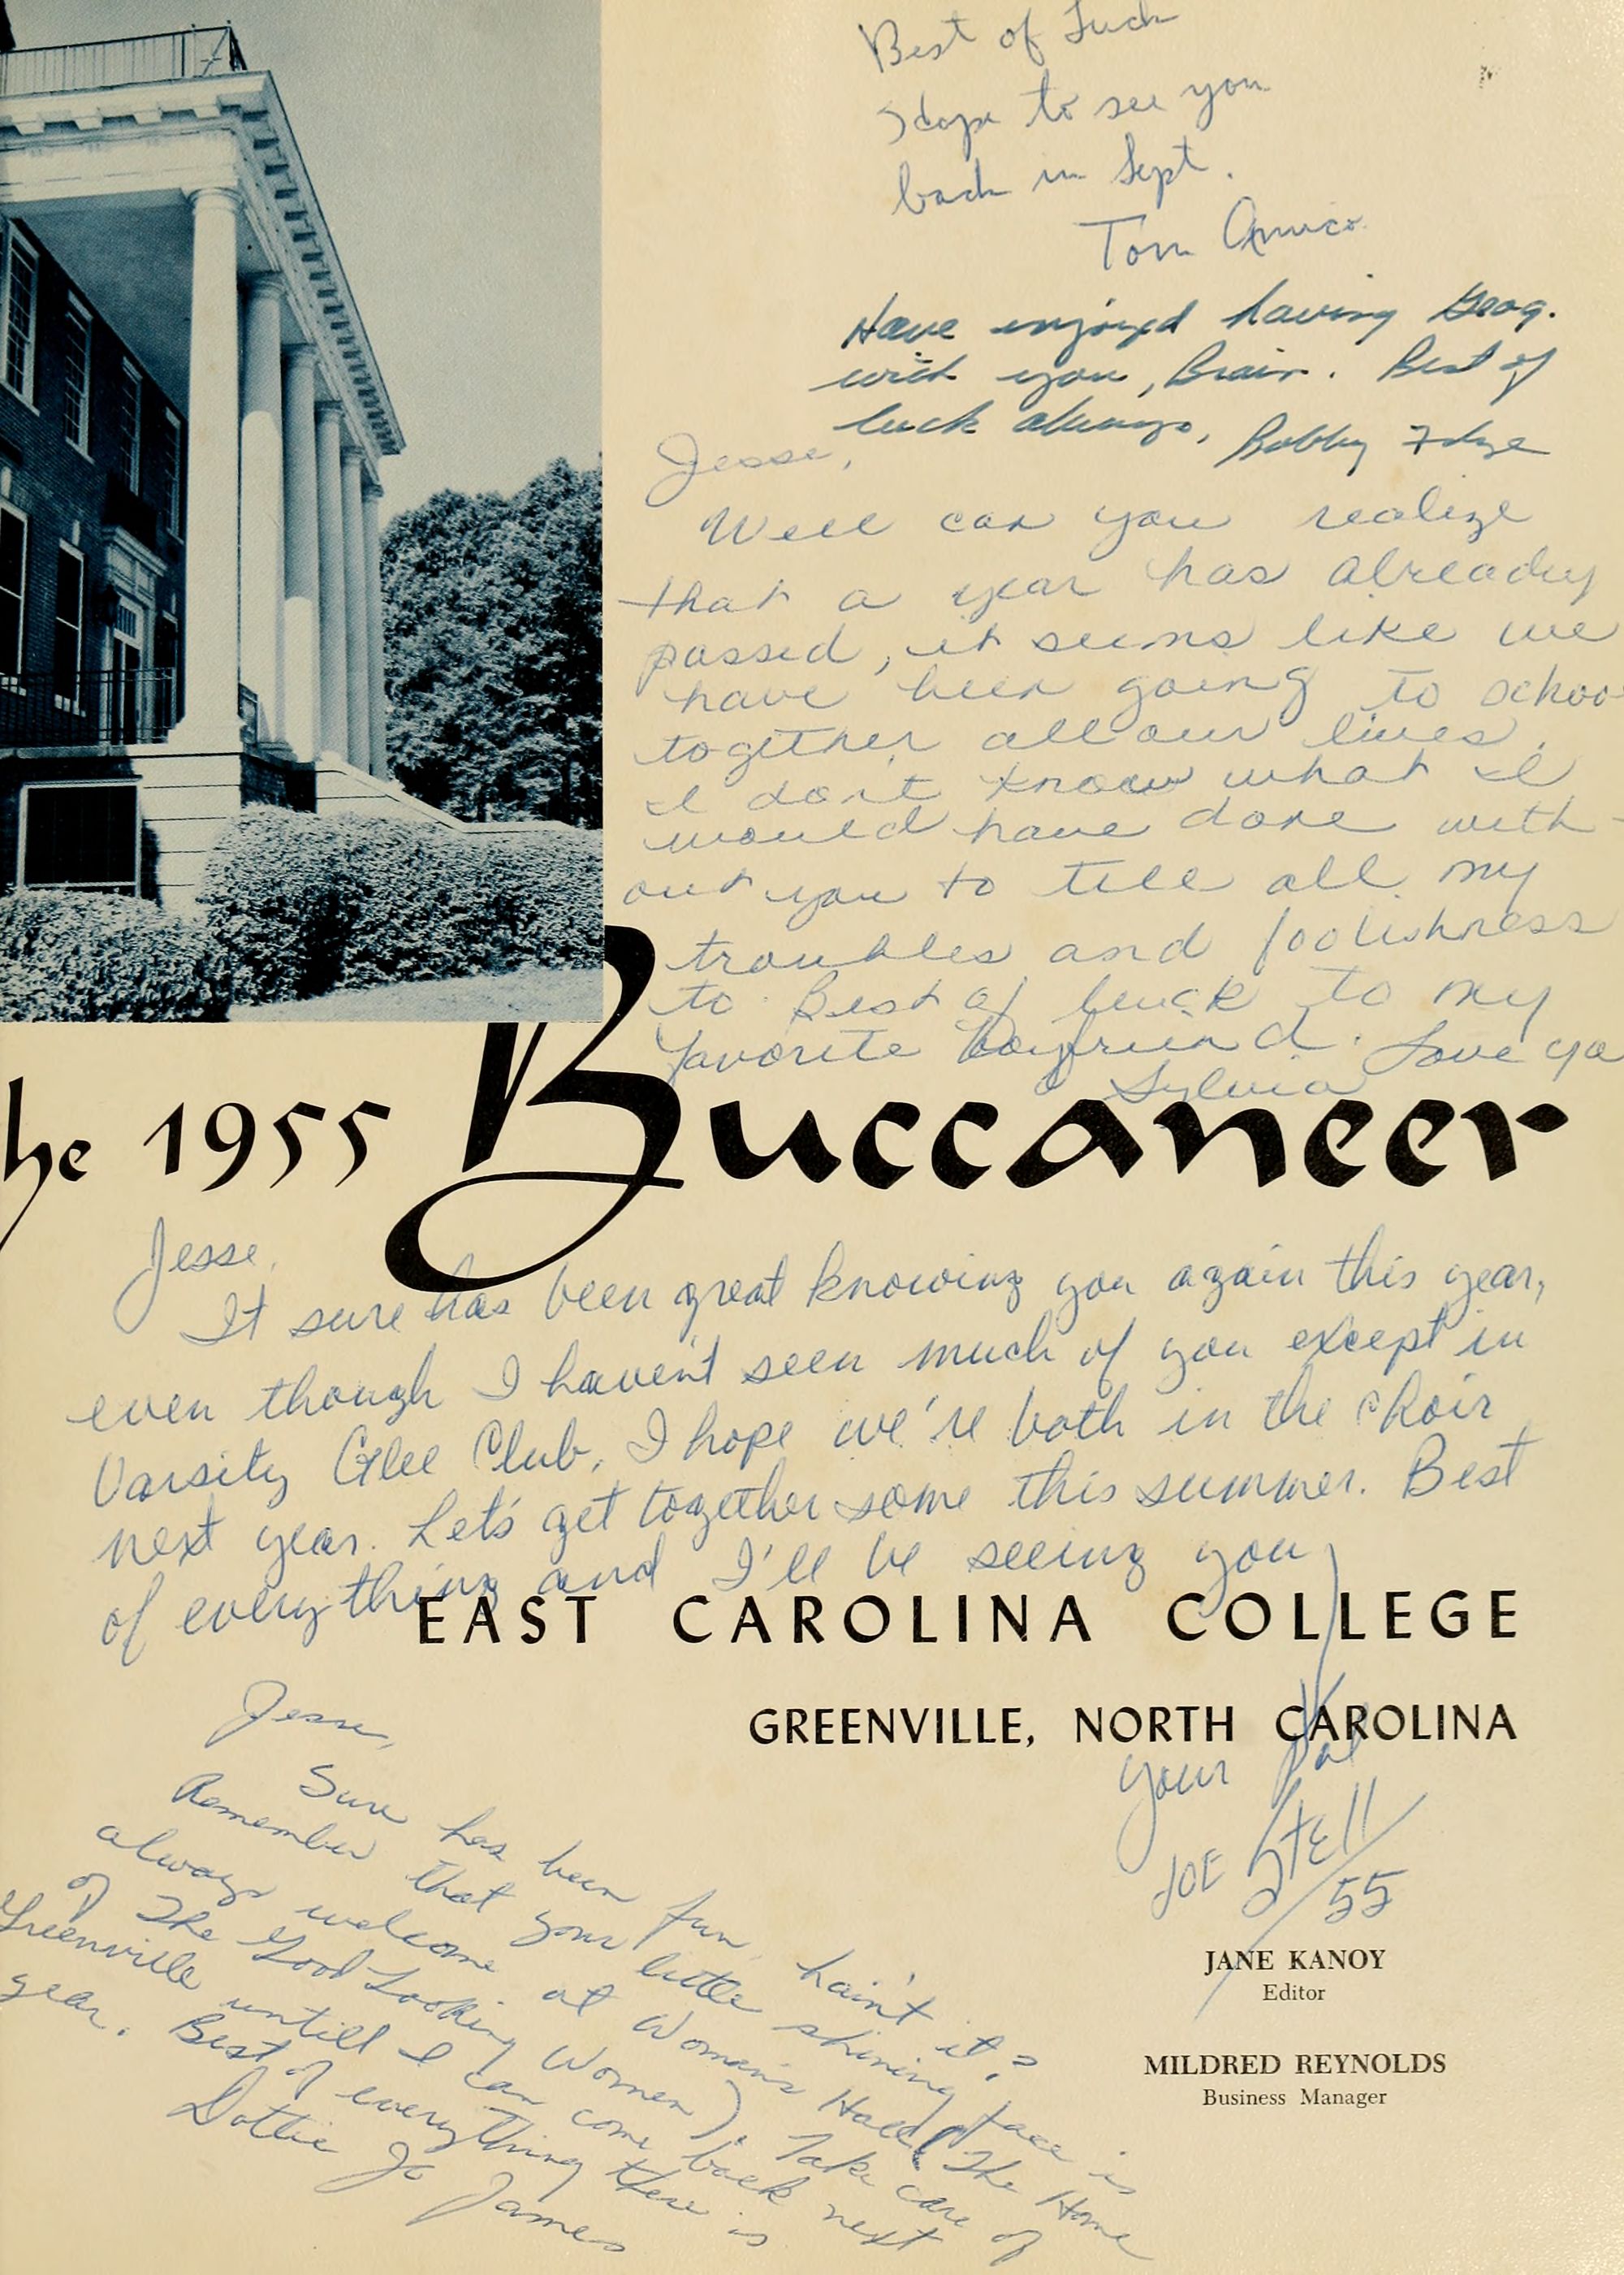 Best of Luck
Hope to see you
back in Sept.
Tom
Have enjoyed having Geog.
with you, Brain. Best of
luck always, Bobby
Jesse,
Well can you realize
that a year has already
passed, it seems like we
have been going to schoo
together all our lives.
I don't know what I
would have done with-
out you to tell all my
troubles and foolishness
to. Best of luck to my
favorite boyfriend. Love ya
Sylvia
he 1955 Buccaneer
Jesse,
It sure has been great knowing you again this year,
even though I haven't seen much of you except in
Varsity Glee Club. I hope we're both in the choir
next year. Let's get together some this summer. Best
of everything and I'll be seeing you
EAST CAROLINA COLLEGE
GREENVILLE, NORTH CAROLINA
Your Pal
JOE StEll
55
Jesse,
Sure has been fun, hain't it?
Remember that your little shining face is
always welcome at Woman's Hall (The Home
of The Good Looking Women). Take care of
Greenville untill I can come back next
year. Best of everything there is
Dottie Jo James
JANE KANOY
Editor
MILDRED REYNOLDS
Business Manager